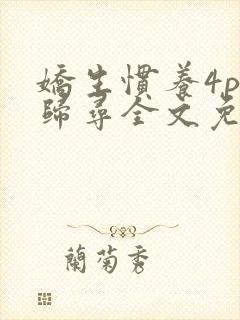 嬌生慣養4p
歸尋全文免
蘭菊秀